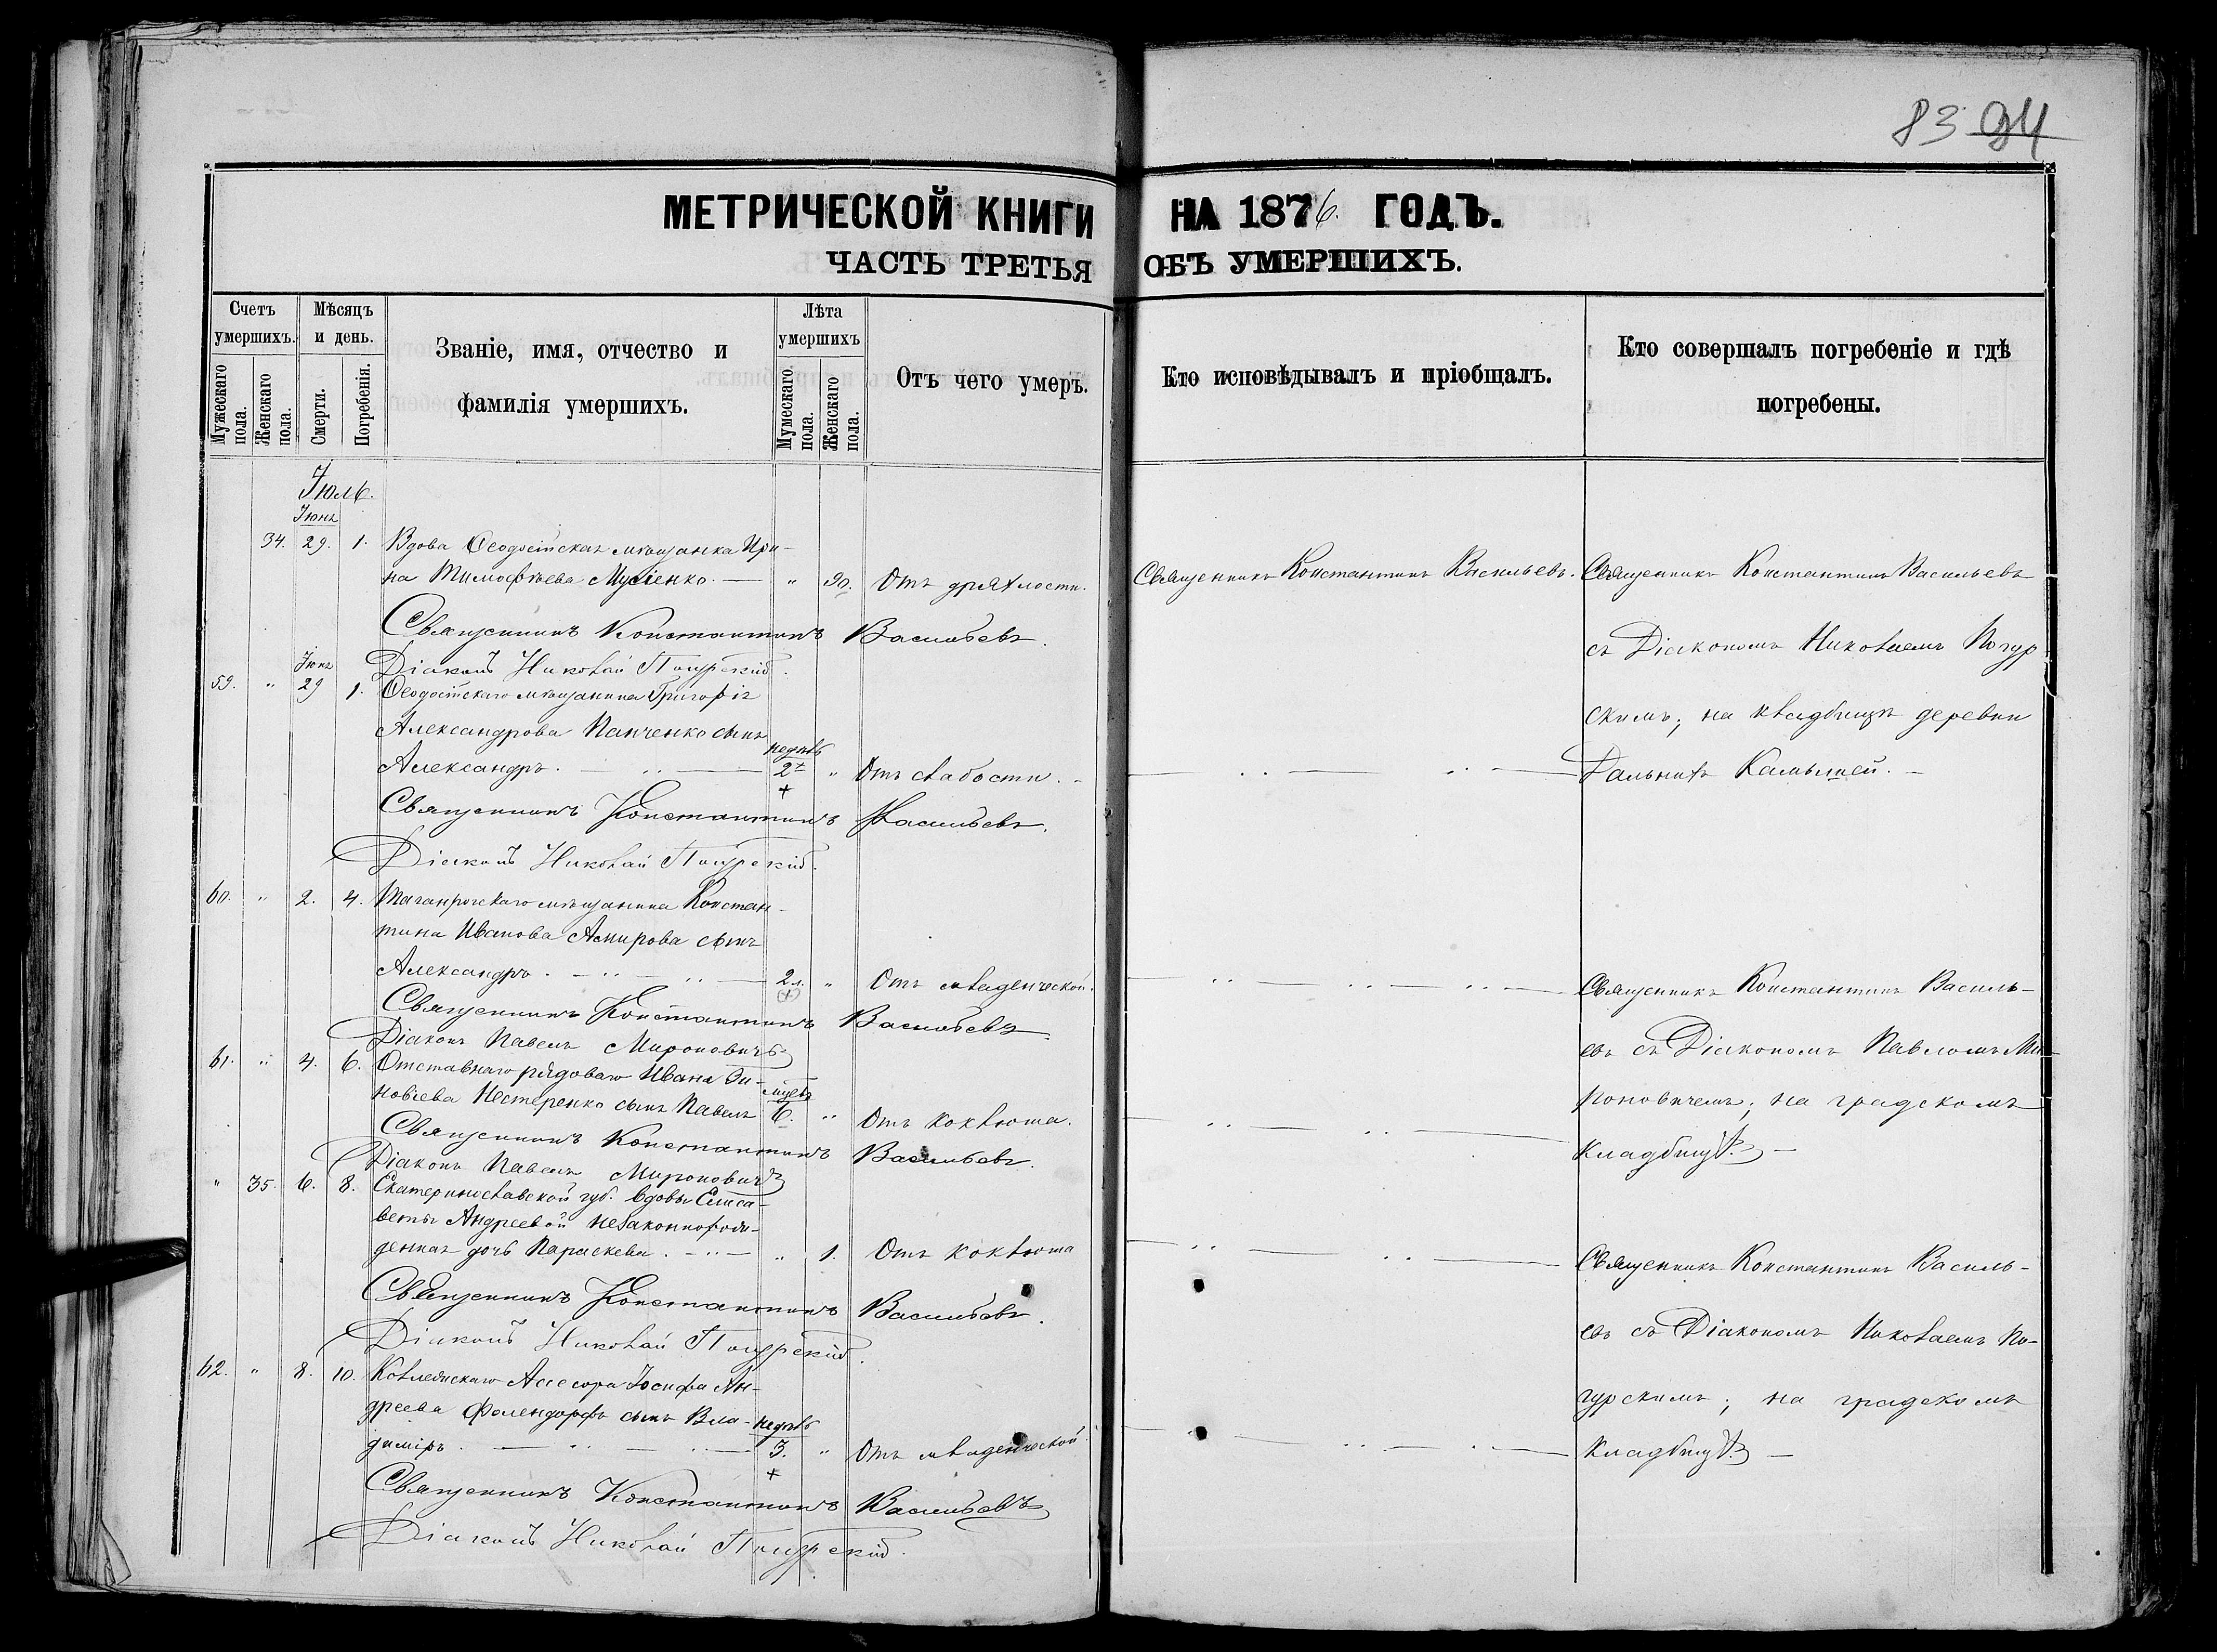 83 94
МЕТРИЧЕСКОЙ КНИГИ НА 1876. ГОДЪ.
ЧАСТЬ ТРЕТЬЯ ОБЪ УМЕРШИХЪ.
Счетъ умершихъ.
Мужескаго пола.
Женскаго пола.
Мѣсяцъ и день.
Смерти.
Погребенія.
Званіе, имя, отчество и
фамилія умершихъ.
Лѣта умершихъ
Мумескаго пола.
Женскаго пола.
Отъ чего умеръ.
Кто исповѣдывалъ и пріобщалъ.
Кто совершалъ погребеніе и гдѣ
погребены.
Іюль.
Іюнь
34. 29. 1. Вдова Ѳеодосійская мѣщанка Ири-
на Тимофѣева Мусіенко. — " 90. Отъ дряхлости.
Священникъ Константинъ Васильевъ.
Діаконъ Николай Погурскій.
Іюнь
59. " 29 1. Ѳеодосійскаго мѣщанина Григорія
Александрова Панченко сынъ
недѣль
Александръ. — 2 " Отъ слабости. -
+
Священникъ Константинъ Васильевъ.
Діаконъ Николай Погурскій.
60. " 2. 4. Таганрогскаго мѣщанина Констан-
тина Иванова Асмирова сынъ
Александръ. — 2 л. " Отъ младенческой.
(+)
Священникъ Константинъ Васильевъ
Діаконъ Павелъ Мироновичъ
61. " 4. 6. Отставнаго рядоваго Ивана Зи-
мѣсяц.
новіева Нестеренко сынъ Павелъ 6. " Отъ коклюша.
Священникъ Константинъ Васильевъ.
Діаконъ Павелъ Мироновичъ
" 35. 6. 8. Екатеринославской губ. вдовы Елиса-
веты Андреевой незаконнорож-
денная дочь Параскева. — " 1. Отъ коклюша
Священникъ Константинъ Васильевъ.
Діаконъ Николай Погурскій.
62. " 8. 10. Коллежскаго Асесора Іосифа Ан-
дреева Фалендорфъ сынъ Вла-
недѣль
диміръ. — 3. " Отъ младенческой
+
Священникъ Константинъ Васильевъ
Діаконъ Николай Погурскій.
Священникъ Константинъ Васильевъ.
Священникъ Константинъ Васильевъ
съ Діакономъ Николаемъ Погур-
скимъ; на кладбищѣ деревни
Дальнихъ Камышей. —
Священникъ Константинъ Василь-
евъ съ Діакономъ Павломъ Ми-
роновичемъ; на градскомъ
кладбищѣ. —
Священникъ Константинъ Василь-
евъ съ Діакономъ Николаемъ По-
гурскимъ; на градскомъ
кладбищѣ. —